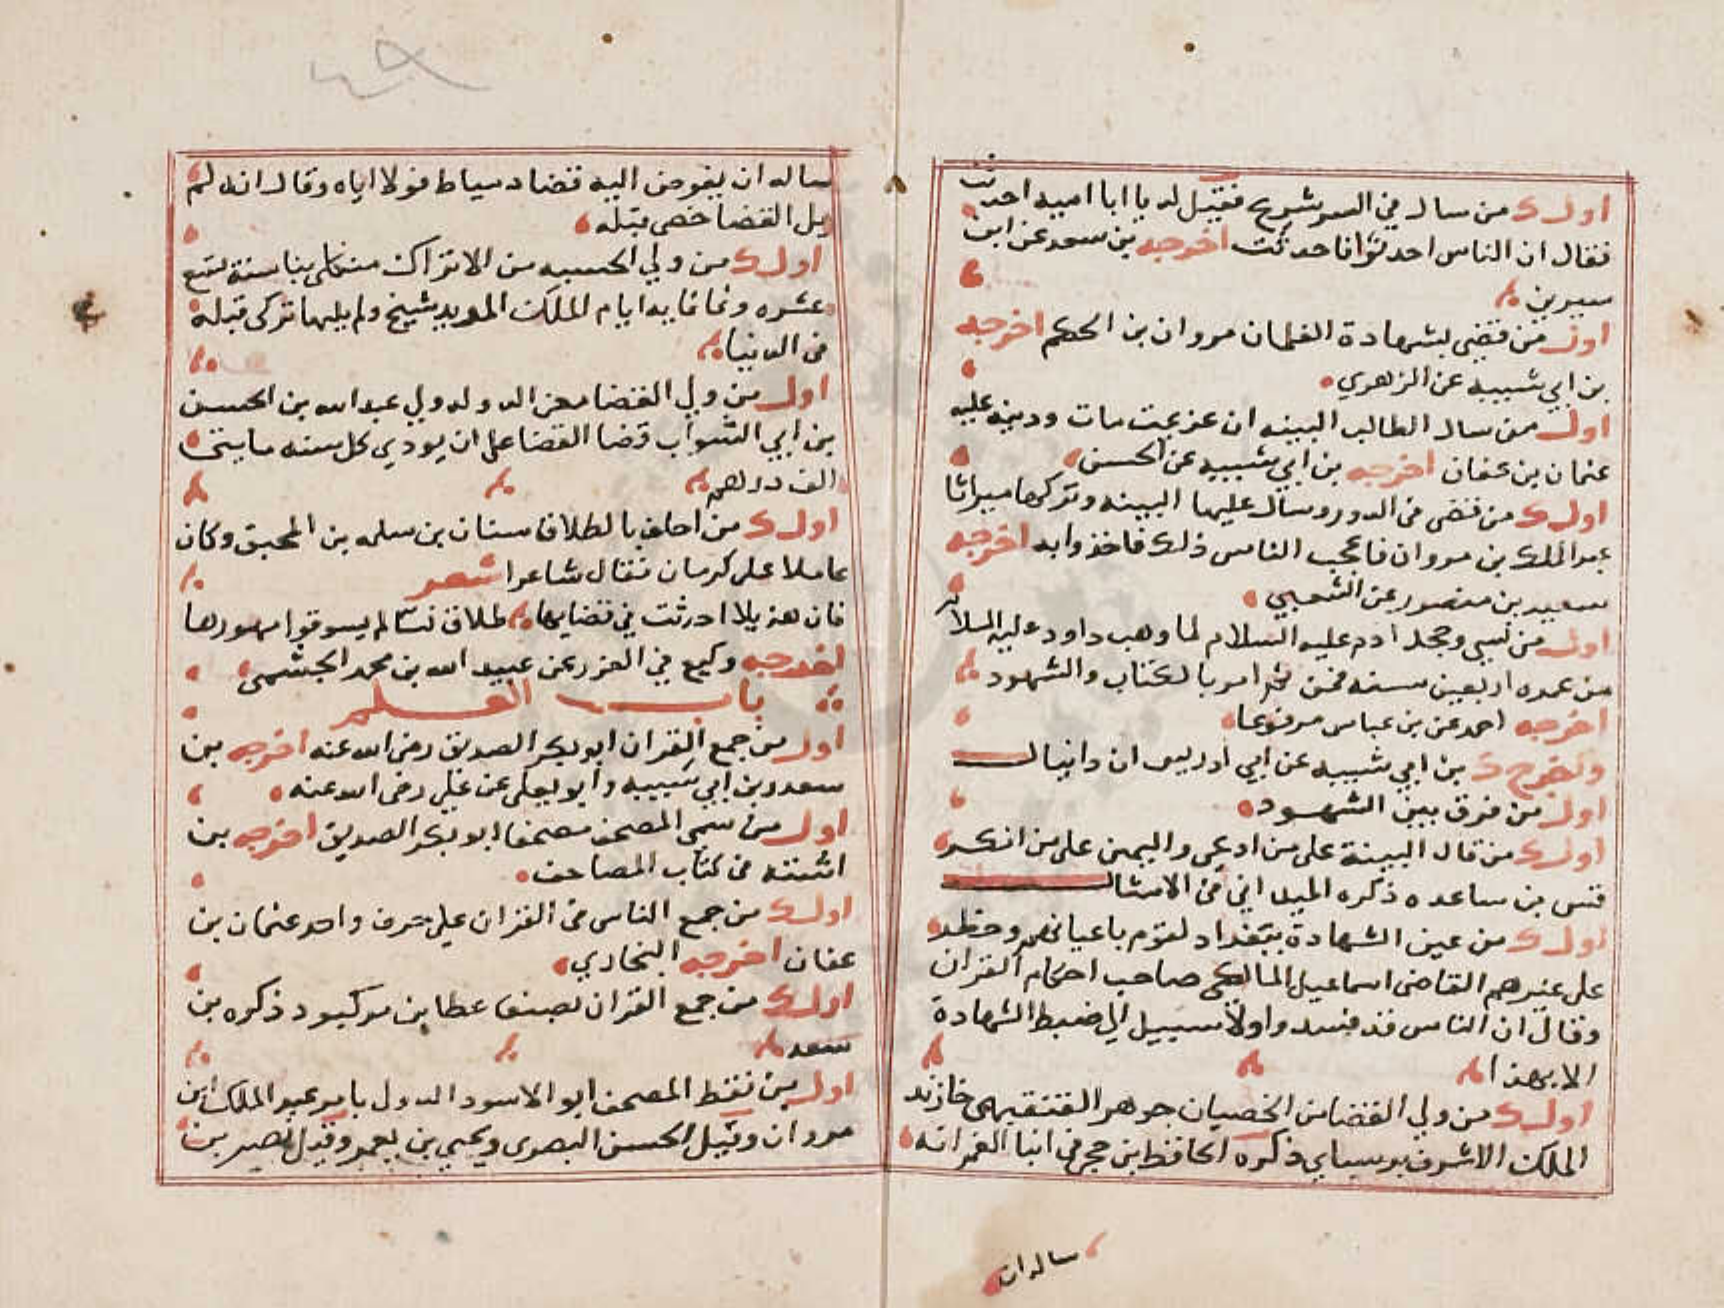 اول من سال في السر شريح فقيل له يا ابا اميه احدثت
فقال ان الناس احدثوا فاحدثت اخرجه بن سعد عن ابن
سيرين
اول من قضى بشهادة الغلمان مروان بن الحكم اخرجه
بن ابي شيبه عن الزهري
اول من سال الطالب البينه ان غريمه مات ودينه عليه
عثمان بن عفان اخرجه بن ابي شيبه عن الحسن
اول من قضى في الدور وسال عليها البينه وتركها ميراثا
عبد الملك بن مروان فاعجب الناس ذلك فاخذوا به اخرجه
سعيد بن منصور عن الشعبي
اول من نسي وجحد ادم عليه السلام لما وهب داود عليه السلام
من عمره اربعين سنه فمن ثم امر بالكتاب والشهود
اخرجه احمد عن بن عباس مرفوعا
واخرج بن ابي شيبه عن ابي ادريس ان دانيال
اول من فرق بين الشهود
اول من قال البينة على من ادعى واليمين على من انكر
قس بن ساعده ذكره الميداني في الامثال
اول من عين الشهادة ببغداد لقوم باعيانهم وحظر
على غيرهم القاضى اسماعيل المالكى صاحب احكام القران
وقال ان الناس قد فسدوا ولا سبيل الى ضبط الشهادة
الا بهذا
اول من ولي القضا من الخصيان جوهر القنقبهى خازند
الملك الاشرف برسباي ذكره الحافظ بن حجر في انبا الغمر انه
ساله ان
ساله ان يفوض اليه قضا دمياط فولاه اياه وقال انه لم
يل القضا خصى قبله
اول من ولي الحسبه من الاتراك منكلى بغا سنة تسع
عشره وثمانمايه ايام الملك المويد شيخ ولم يليها تركى قبله
فى الدنيا
اول من ولي القضا معز الدوله ولي عبد الله بن الحسن
بن ابي الشواب قضا القضا على ان يودي كل سنه مايتى
الف درهم
اول من احلف بالطلاق سنان بن سلمه بن المحبق وكان
عاملا على كرمان فقال شاعرا شعر
فان هذيلا احدثت في قضايها طلاق نسا لم يسوقوا مهورها
اخرجه وكيع في الغرر عن عبيد الله بن محمد الجشمى
باب العلم
اول من جمع القران ابو بكر الصديق رضى الله عنه اخرجه بن
سعد وبن ابي شيبه وابو يعلى عن علي رضى الله عنه
اول من سمى المصحف مصحفا ابو بكر الصديق اخرجه بن
اشته فى كتاب المصاحف
اول من جمع الناس فى القران على حرف واحد عثمان بن
عفان اخرجه البخاري
اول من جمع القران بصنعا عطا بن مركبود ذكره بن
سعد
اول من نقط المصحف ابو الاسود الدول بامر عبد الملك بن
مروان وقيل الحسن البصرى ويحيي بن يعمر وقيل نصير بن